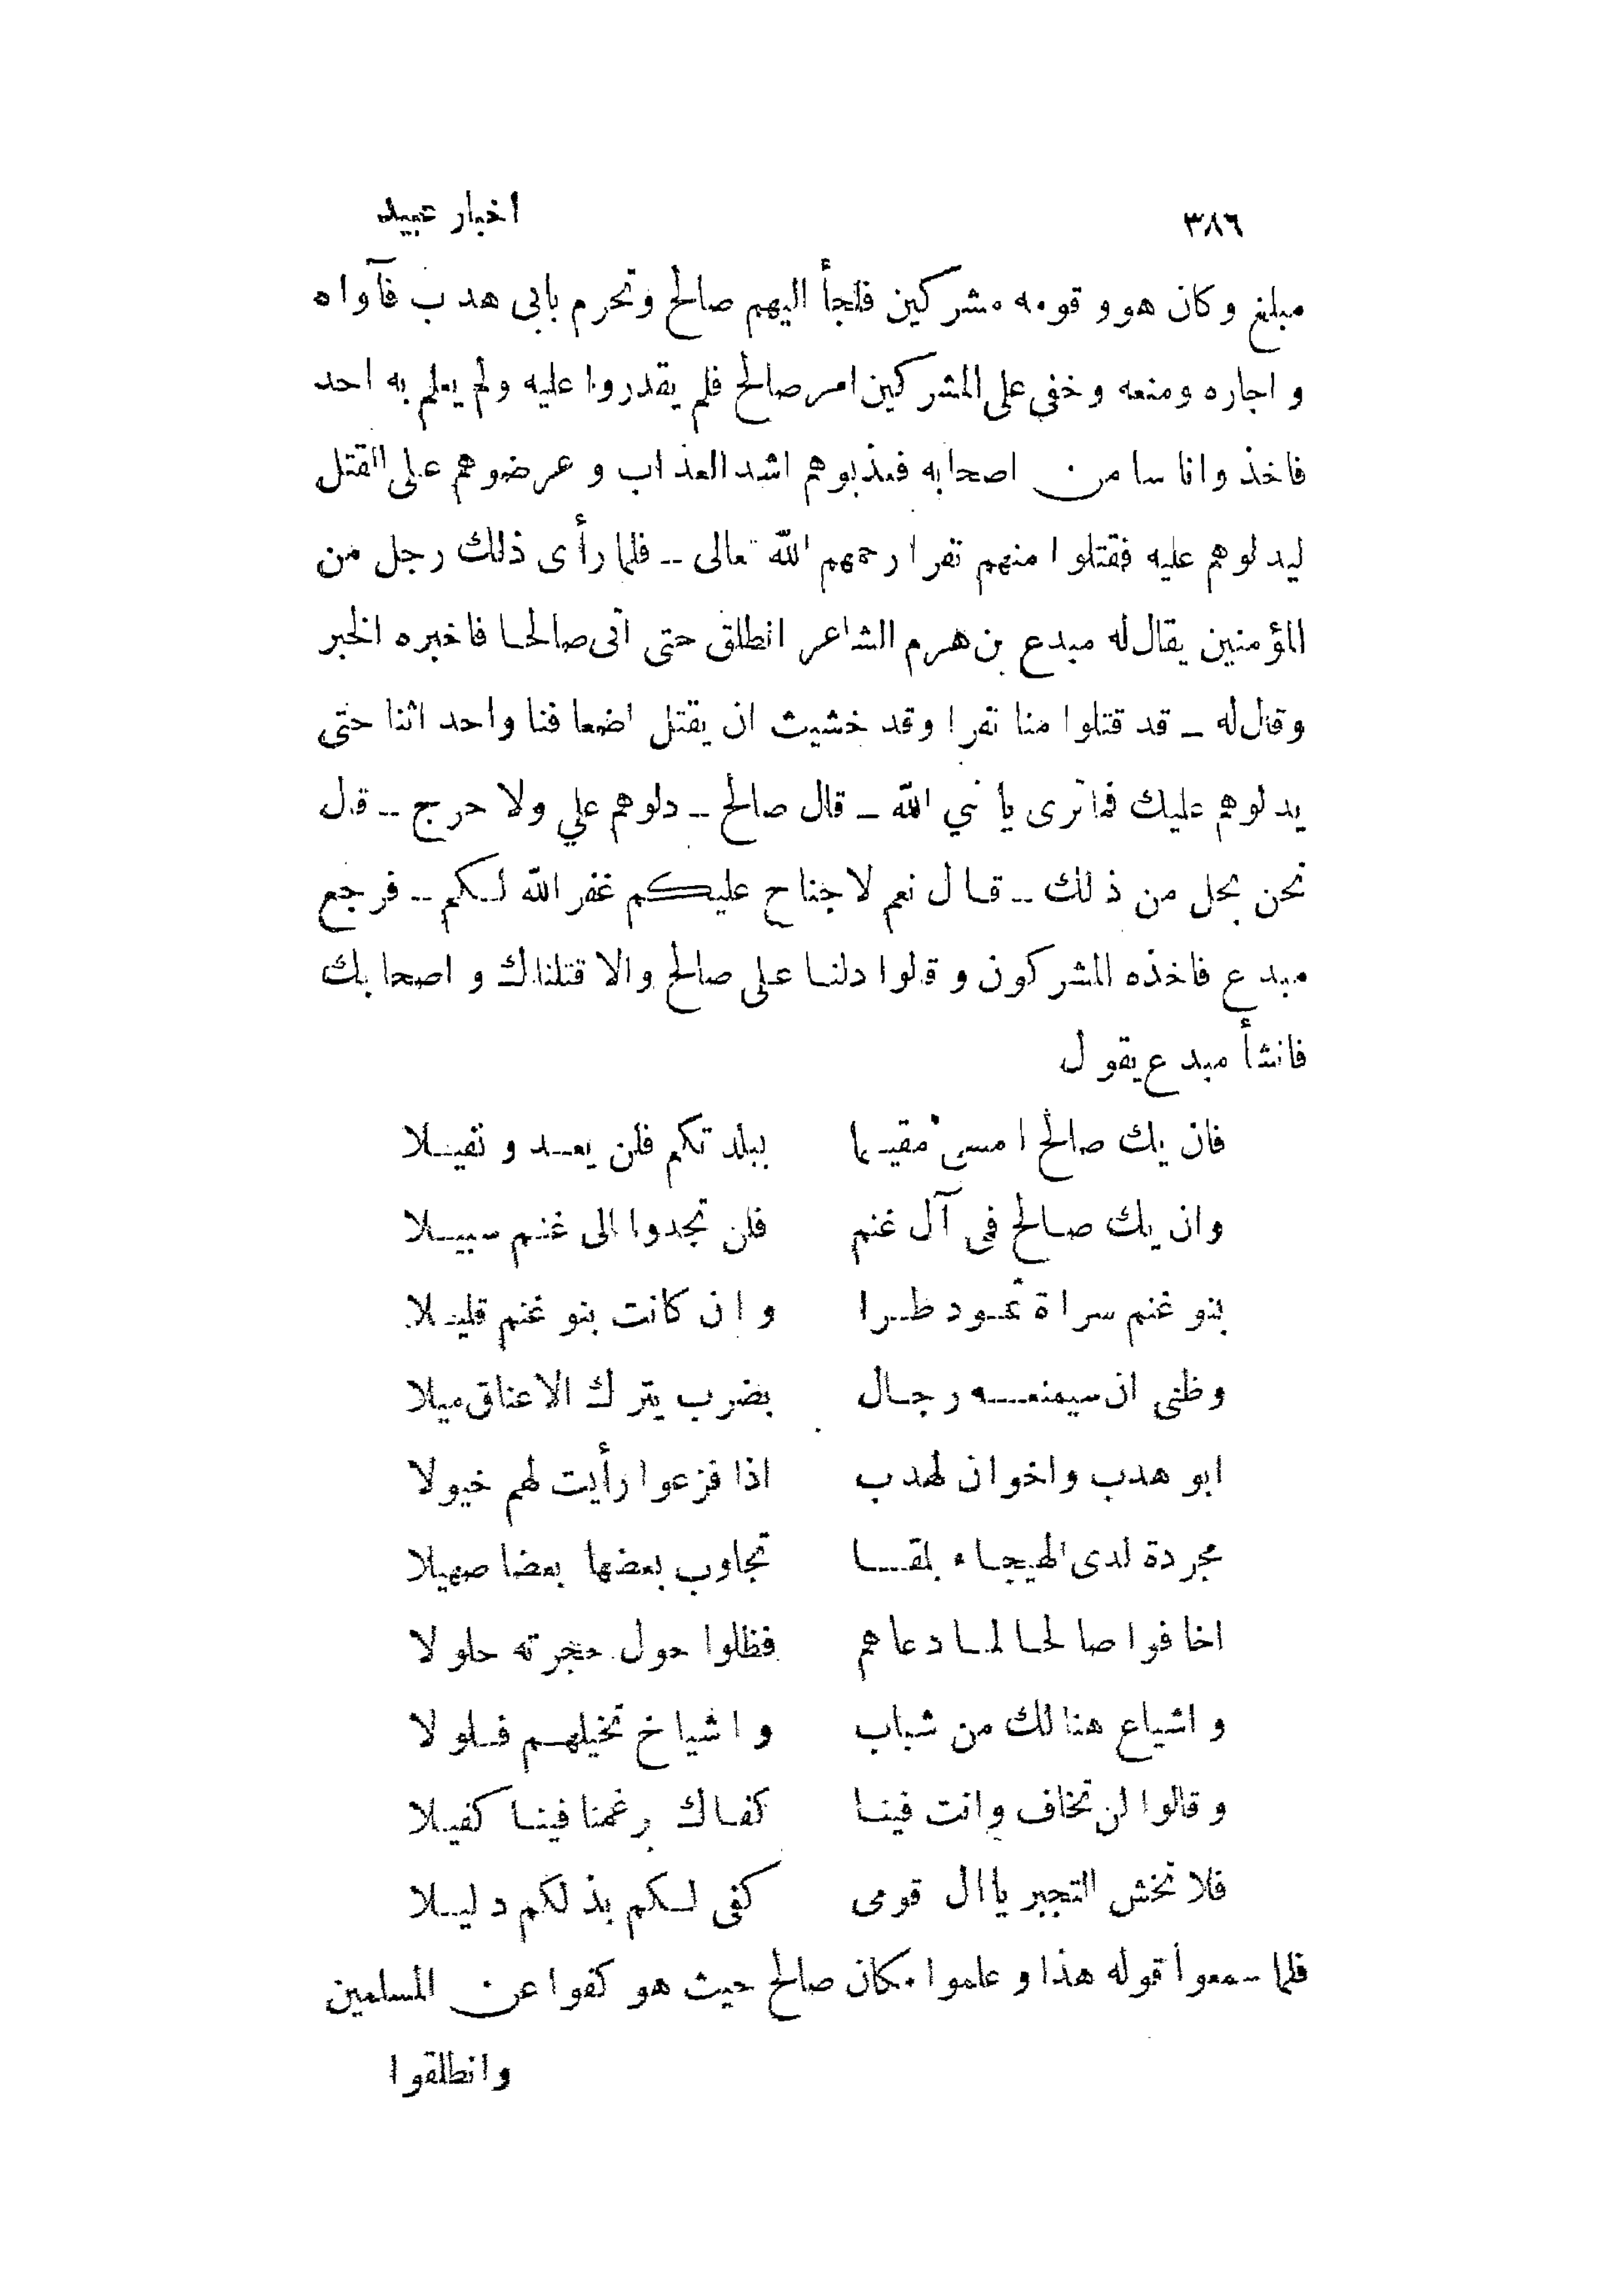 ٣٨٦
اخبار عبيد
مبلغ وكان هو و قومه مشركين فلجأ اليهم صالح وتحرم بابى هدب فآواه
و اجاره ومنعه وخفى على المشركين امر صالح فلم يقدروا عليه ولم يعلم به احد
فاخذ وا ناسا من اصحابه فعذبوهم اشد العذاب و عرضوهم على القتل
ليدلوهم عليه فقتلوا منهم نفرا رحمهم الله تعالى ــ فلما رأى ذلك رجل من
المؤمنين يقال له مبدع بن هرم الشاعر انطلق حتى اتى صالحا فاخبره الخبر
وقال له ــ قد قتلوا منا نفرا وقد خشيت ان يقتل اضعافنا واحد اثنا حتى
يدلوهم عليك فما ترى يا نبي الله ــ قال صالح ــ دلوهم علي ولا حرج ــ قال
نحن بحل من ذلك ــ قال نعم لا جناح عليكم غفر الله لكم ــ فرجع
مبدع فاخذه المشركون و قالوا دلنا على صالح والا قتلناك و اصحابك
فانشأ مبدع يقول
فان يك صالح امسى مقيما ببلدتكم فلن يعدو نفيلا
وان يك صالح فى آل غنم فلن تجدوا الى غنم سبيلا
بنو غنم سراة ثمود طرا و ان كانت بنو غنم قليلا
وظنى ان سيمنعه رجال بضرب يترك الاعناق ميلا
ابو هدب واخوان لهدب اذا فزعوا رأيت لهم خيولا
مجردة لدى الهيجاء بلقا تجاوب بعضها بعضا صهيلا
اخافوا صالحا لما دعاهم فظلوا حول حجرته حلولا
و اشياع هنالك من شباب و اشياخ تخيلهم فلولا
وقالوا لن تخاف وانت فينا كفاك رغمنا فينا كفيلا
فلا تخش التجبر يا ال قومى كفى لكم بذلكم دليلا
فلما سمعوا قوله هذا و علموا مكان صالح حيث هو كفوا عن المسلمين
وانطلقوا